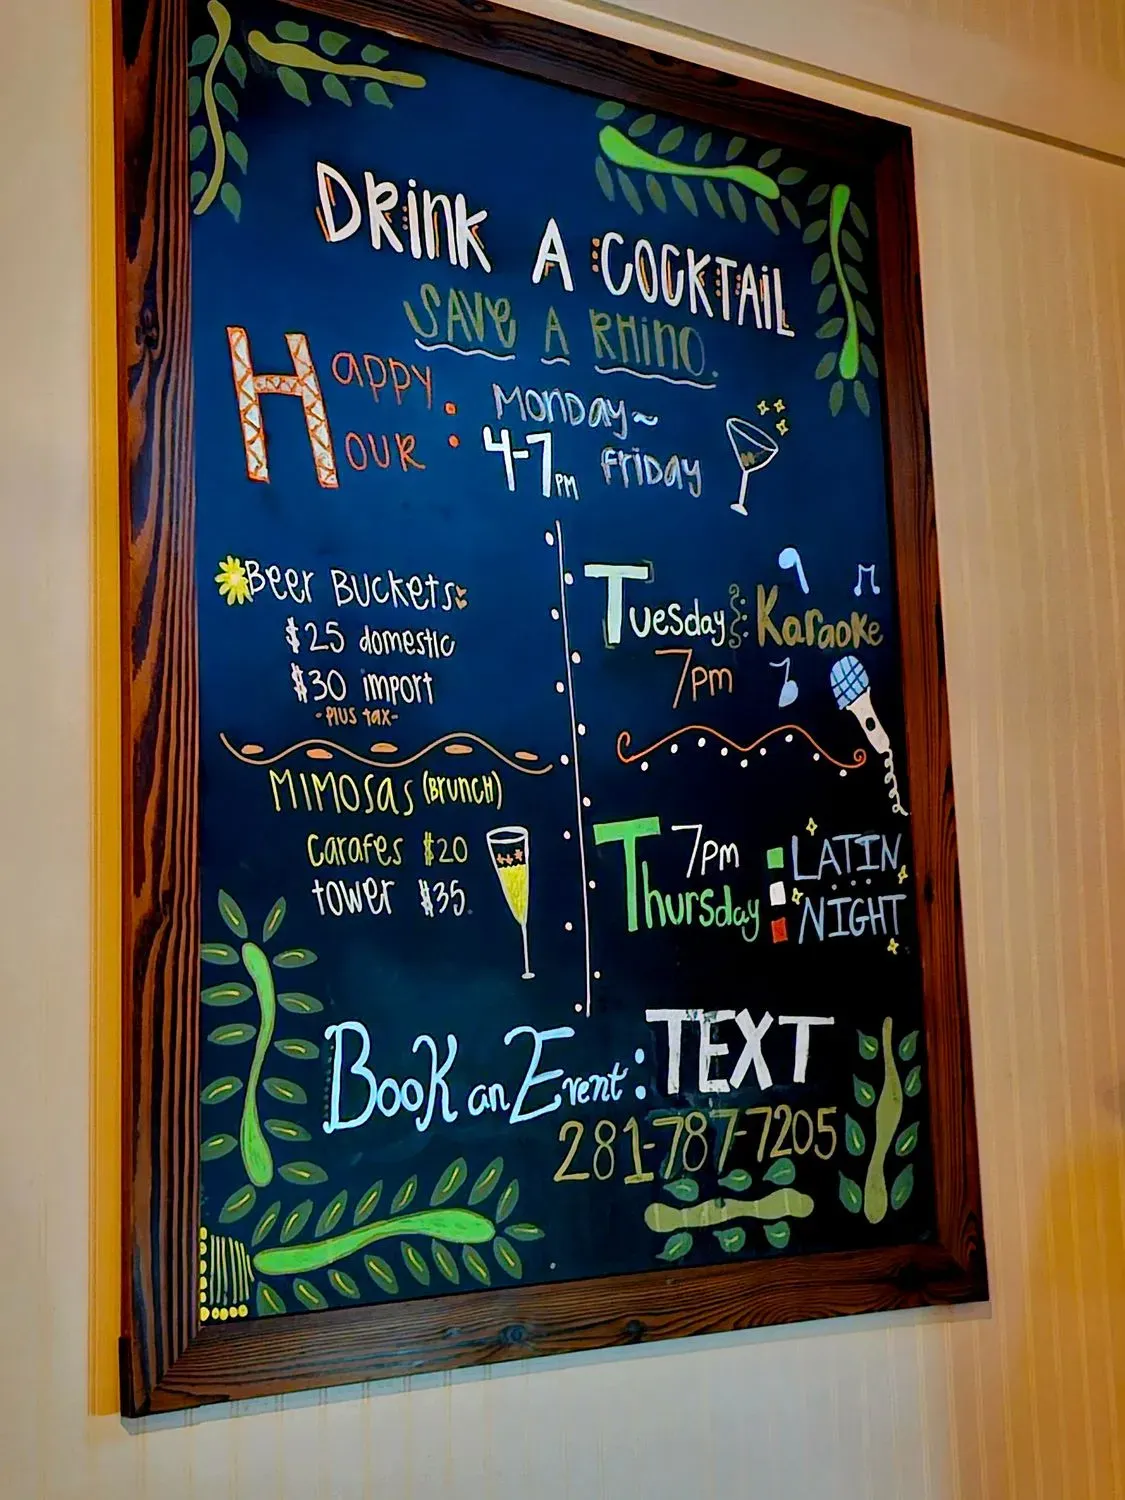 DRINK A COCKTAIL
SAVE A RHINO.
HAPPY HOUR: MONDAY~
4-7PM FRIDAY
Beer Buckets
$25 domestic
$30 import
-Plus tax-
MIMOSAS (BRUNCH)
Carafes $20
tower $35
Tuesday Karaoke
7pm
7pm LATIN
Thursday NIGHT
Book an Event: TEXT
281-787-7205